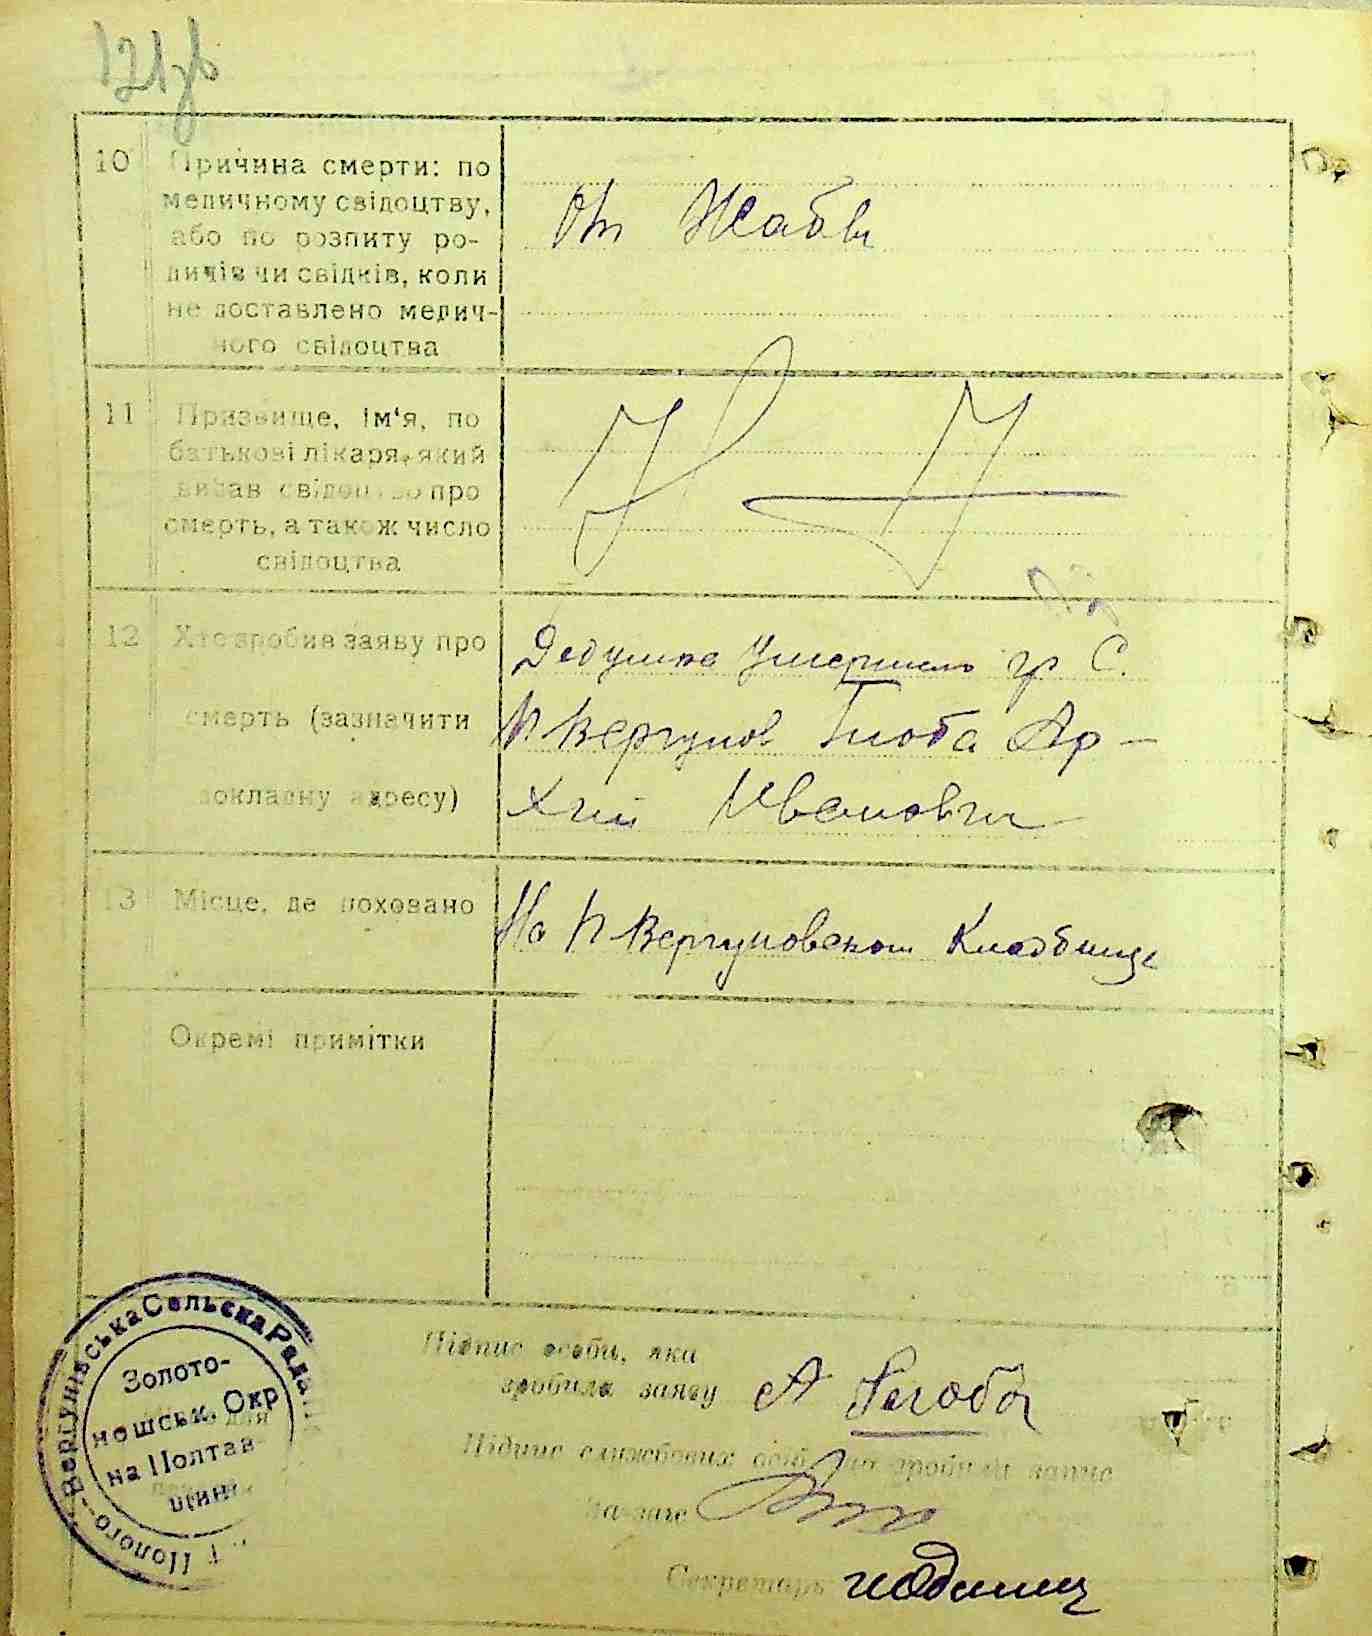 121зв
10 Причина смерти: по
медичному свідоцтву,
або по розпиту ро-
дичів чи свідків, коли
не доставлено медич-
ного свідоцтва
От Жабы
11 Призвище, ім'я, по
батькові лікаря, який
видав свідоцтво про
смерть, а також число
свідоцтва
12 Хто зробив заяву про
смерть (зазначити
докладну адресу)
Дедушка Умершаго гр С.
П Вергунов Глоба Ар-
хип Иванович
13 Місце, де поховано
На П Вергуновском Кладбище
Окремі примітки
Підпис особи, яка
зробила заяву А Глоба
Підпис службових осіб, що зробили запис
Секретарь
Полого-Вергунівська Сельска Рада
Золото-
ношськ. Окр
на Полтав-
щині